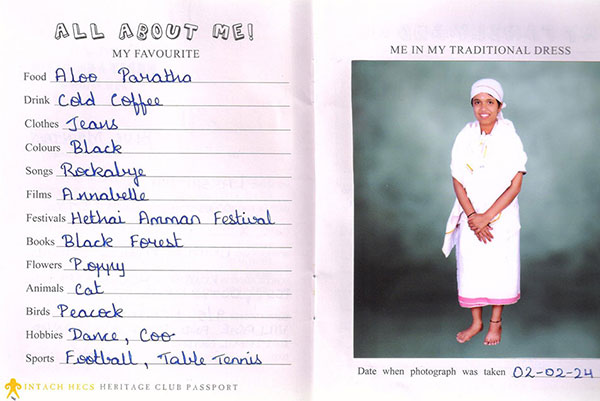 ALL ABOUT ME!
MY FAVOURITE
Food Aloo Paratha
Drink Cold Coffee
Clothes Jeans
Colours Black
Songs Rockabye
Films Annabelle
Festivals Hethai Amman Festival
Books Black Forest
Flowers Poppy
Animals Cat
Birds Peacock
Hobbies Dance, Coo
Sports Football, Table Tennis
INTACH HECS HERITAGE CLUB PASSPORT
ME IN MY TRADITIONAL DRESS
Date when photograph was taken 02-02-24